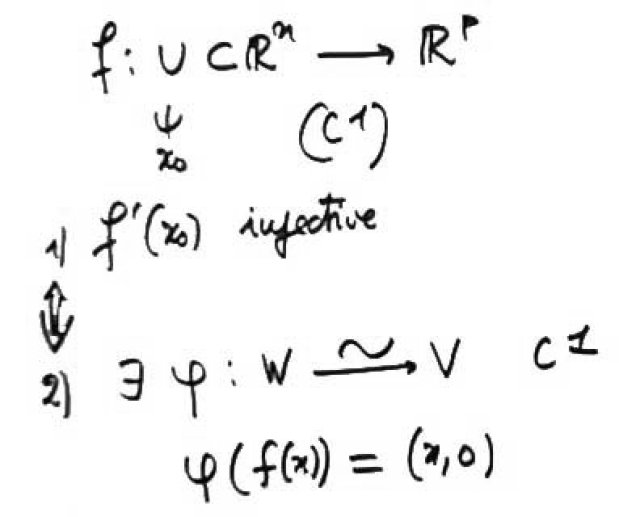 f : U ⊂ ℝⁿ ⟶ ℝᵖ
ψ (C¹)
x₀
1) f'(x₀) injective
⇕
2) ∃ φ : W ⥲ V C¹
φ(f(x)) = (x,0)